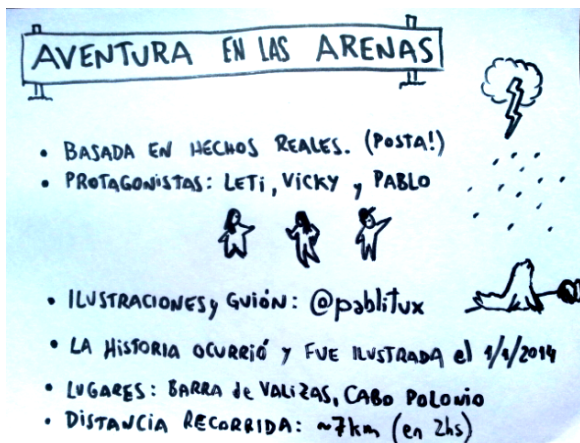 AVENTURA EN LAS ARENAS
• BASADA EN HECHOS REALES. (POSTA!)
• PROTAGONISTAS: LETI, VICKY y PABLO
• ILUSTRACIONES y GUIÓN: @pablitux
• LA HISTORIA OCURRIÓ Y FUE ILUSTRADA el 1/1/2014
• LUGARES: BARRA de VALIZAS, CABO POLONIO
• DISTANCIA RECORRIDA: ~7km (en 2hs)